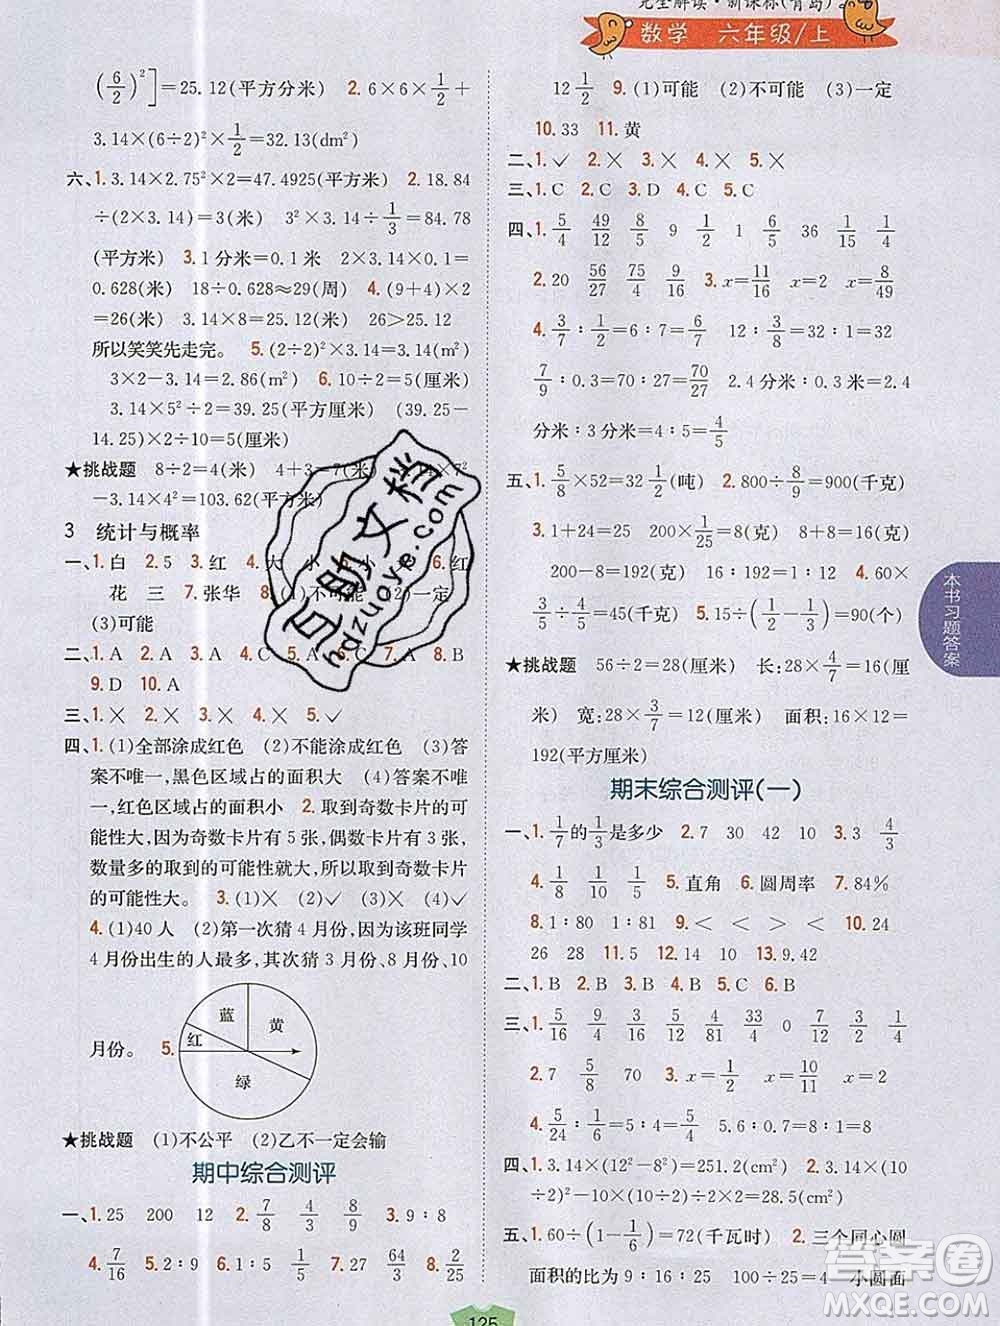 完全解读·新课标(青岛)
数学 六年级/上
(6/2)²]=25.12(平方分米) 2.6×6×1/2+
3.14×(6÷2)²×1/2=32.13(dm²)
六、1.3.14×2.75²×2=47.4925(平方米) 2.18.84
÷(2×3.14)=3(分米) 3²×3.14÷1/3=84.78
(平方米) 3.1分米=0.1米 2×3.14×0.1=
0.628(米) 18÷0.628≈29(周) 4.(9+4)×2
=26(米) 3.14×8=25.12(米) 26>25.12
所以笑笑先走完。 5.(2÷2)²×3.14=3.14(m²)
3×2-3.14=2.86(m²) 6.10÷2=5(厘米)
3.14×5²÷2=39.25(平方厘米) (39.25-
14.25)×2÷10=5(厘米)
★挑战题 8÷2=4(米) 4+3=7(米) 3.14×7²
-3.14×4²=103.62(平方米)
3 统计与概率
一、1.白 2.5 3.红 4.大 小 5.
6.红
花 三 7.张华 8.(1)不可能 (2)一定
(3)可能
二、1.A 2.A 3.B 4.B 5.C 6.A 7.A 8.B
9.D 10.A
三、1.× 2.× 3.× 4.× 5.✓
四、1.(1)全部涂成红色 (2)不能涂成红色 (3)答
案不唯一,黑色区域占的面积大 (4)答案不唯
一,红色区域占的面积小 2.取到奇数卡片的可
能性大,因为奇数卡片有5张,偶数卡片有3张,
数量多的取到的可能性就大,所以取到奇数卡片
的可能性大。 3.(1)× (2)✓ (3)× (4)✓
4.(1)40人 (2)第一次猜4月份,因为该班同学
4月份出生的人最多,其次猜3月份、8月份、10
月份。 5.
蓝
黄
红
绿
★挑战题 (1)不公平 (2)乙不一定会输
期中综合测评
一、1.25 200 12 2.7/8 4/3 8/9 3.9∶8
4.7/16 15 5.9 6.1/5 7.27 64/3 8.2/25
12 1/2 9.(1)可能 (2)不可能 (3)一定
10.33 11.黄
二、1.✓ 2.× 3.× 4.× 5.×
三、1.C 2.C 3.D 4.C 5.C
四、1.5/4 49/12 8/5 9 1/2 1 3/5 36 1/15 1/4
2.20 56/27 75/4 9/16 3.x=11/16 x=2 x=8/49
4.3/7∶1/2=6∶7=6/7 12∶3/8=32∶1=32
7/9∶0.3=70∶27=70/27 2.4分米∶0.3米=2.4
分米∶3分米=4∶5=4/5
五、1.5/8×52=32 1/2(吨) 2.800÷8/9=900(千克)
3.1+24=25 200×1/25=8(克) 8+8=16(克)
200-8=192(克) 16∶192=1∶12 4.60×
3/5÷4/5=45(千克) 5.15÷(1/2-1/3)=90(个)
★挑战题 56÷2=28(厘米) 长:28×4/7=16(厘
米) 宽:28×3/7=12(厘米) 面积:16×12=
192(平方厘米)
期末综合测评(一)
一、1.1/7的1/3是多少 2.7 30 42 10 3.3 4/3
4.1/8 1/10 1/5 5.直角 6.圆周率 7.84%
8.1∶1 1∶1 9.< < > < 10.24
26 28 11.5 12.14 10 13.9.42
二、1.B 2.C 3.B 4.B 5.B
三、1.5/16 9/4 5/16 4/9 33/4 0 7/12 3/2 9/4
2.7 5/8 70 3.x=1/2 x=10/11 x=2
4.5/24 9/50 5.5∶4=5/4 8∶1=8
四、1.3.14×(12²-8²)=251.2(cm²) 2.3.14×(10
÷2)²-(10÷2)×(10÷2)÷2×2×2=28.5(cm²)
五、1.60÷(1-1/6)=72(千瓦时) 2.三个同心圆
面积的比为9∶16∶25 100÷25=4 小圆面
本书习题答案
125
百助文档
ydaznoye.com
答案圈
MXQE.COM